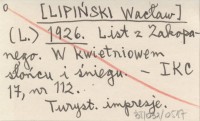 [LIPIŃSKI Wacław]
(L.) 1926. List z Zakopa-
nego. W kwietniowem
słońcu i śniegu. — IKC
17, nr 112.
Turyst. impresje.